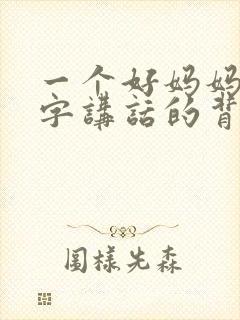 一个好妈妈
字講話的背
圖樣先森